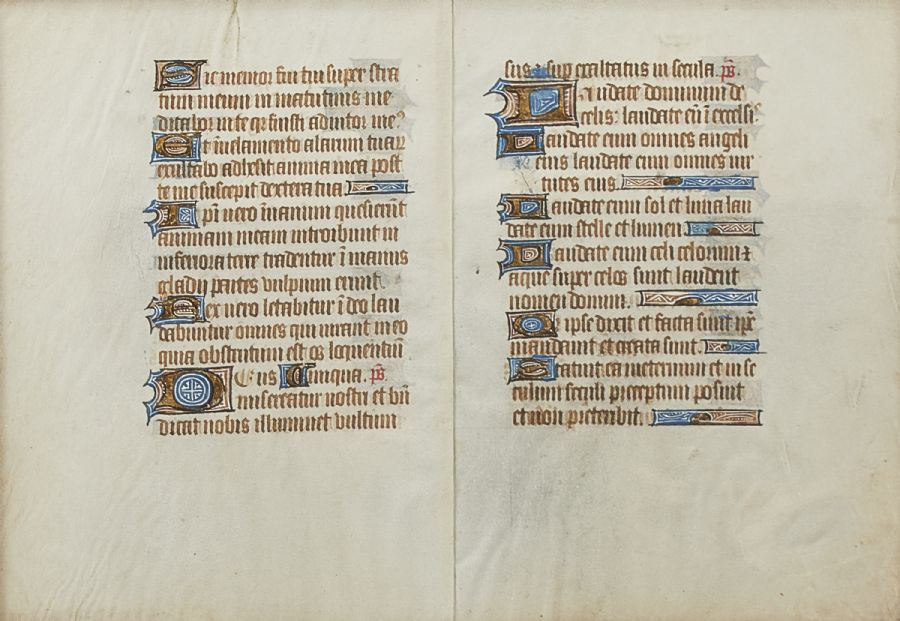 Sic memor fui tui super stra
tum meum in matutinis me
ditabor in te qr fuisti adiutor me⁹
Et in velamento alarum tuaꝝ
exultabo adhesit anima mea post
te me suscepit dextera tua
Ipi vero i vanum quesierūt
animam meam introibunt in
inferiora terre tradentur ī manus
gladii partes vulpium erunt.
Rex vero letabitur ī deo lau
dabuntur omnes qui iurant in eo
quia obstructum est os loquentiū
Deus Cunqua. ps
misereatur nostri et bn
dicat nobis illuminet vultum
sus ⁊ sup exaltatus in secula. ps
Laudate dominum de
celis: laudate eū ī excelsi⁹
Laudate eum omnes angeli
eius laudate eum omnes uir
tutes eius.
Laudate eum sol et luna lau
date eum stelle et lumen.
Laudate eum celi celorum ⁊
aque super celos sunt laudent
nomen domini.
Qr ipse dixit et facta sunt ipē
mandauit et creata sunt.
Statuit ea in eternum et in se
culum seculi preceptum posuit
et non preteribit.